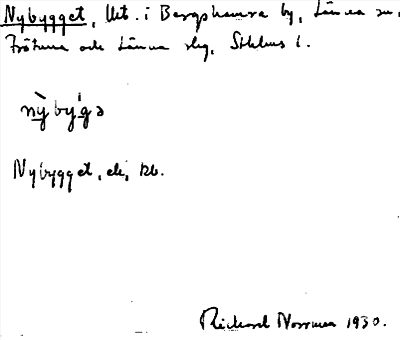 Nybygget, Utt. i Bergshamra by, Länna sn,
Frötuna och Länna slg, Sthlms l.
nỳby'gə
Nybygget, ek, kb.
Rickard Norrman 1930.